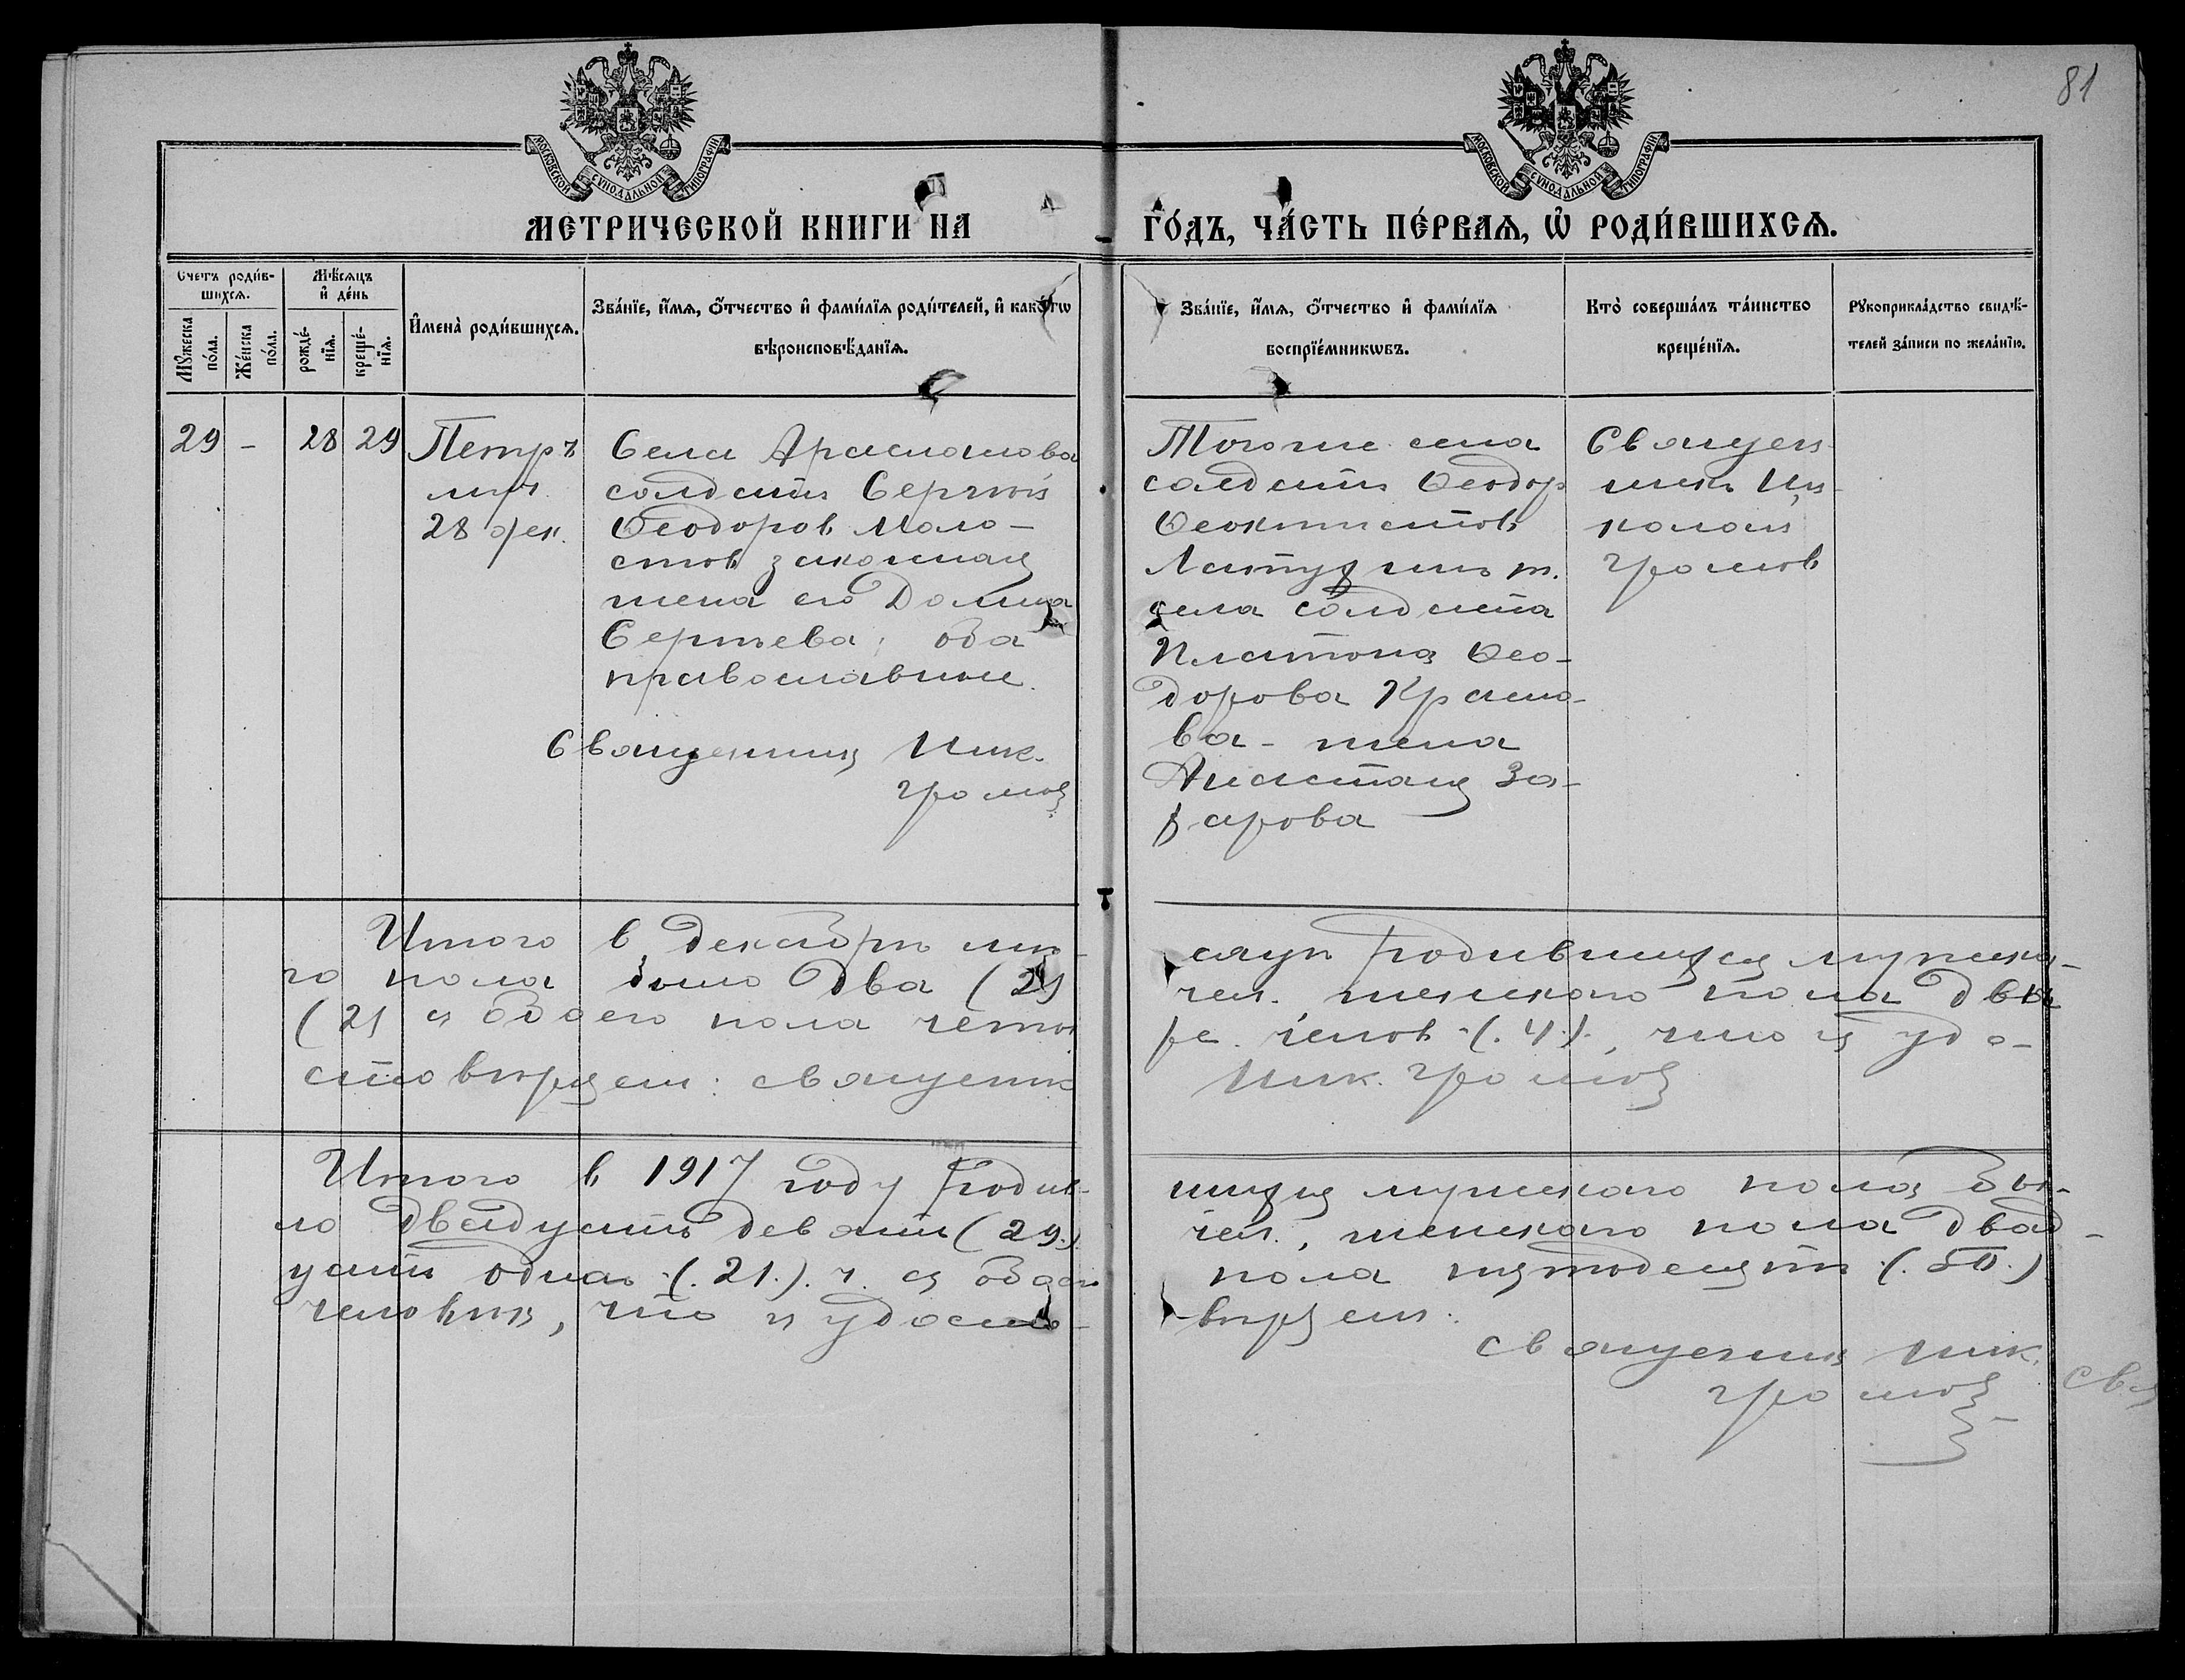 81
МОСКОВСКОЙ СѴНОДАЛЬНОЙ ТИПОГРАФІИ
МОСКОВСКОЙ СѴНОДАЛЬНОЙ ТИПОГРАФІИ
МЕТРИЧЕСКОЙ КНИГИ НА ГО́ДЪ, ЧА́СТЬ ПЕ́РВАЯ, Ѡ҆ РОДИ́ВШИХСЯ.
Счетъ роди́в-
шихся.
Мѣ́сяцъ
и҆ де́нь
Мꙋ́жеска
по́ла.
Же́нска
по́ла.
рожде́-
нїя.
креще́-
нїя.
И҆мена̀ роди́вшихся.
Зва́нїе, и҆́мя, ѻ҆́тчество и҆ фами́лїя роди́телей, и҆ како́гѡ
вѣроисповѣ́данїя.
Зва́нїе, и҆́мя, ѻ҆́тчество и҆ фами́лїя
воспрїе́мникѡвъ.
Кто̀ соверша́лъ та́инство
креще́нїя.
Рꙋкоприкла́дство свидѣ́-
телей за́писи по жела́нїю.
29 - 28 29
Петръ
муч.
28 дек.
Села Арасланова
солдатъ Сергѣй
Ѳеодоров Моло-
стов законная
жена его Домна
Сергѣева; оба
православные.
Священник Ник.
Громов
Тогоже села
солдатъ Ѳеодор
Ѳеоктистов
т.
села солдата
Платона Ѳео-
дорова
ва - жена
Анастасия За-
харова
Священ-
никъ Ни-
колай
Громов
Итого в декабрѣ мѣ-
сяцѣ родившихся мужска-
го пола было два (2)
чел. женскаго пола два
(2) и обоего пола четы
ре. челов. (.4.)., что и удо-
стовѣряем: священник
Ник. Громов
Итого в 1917 году родив-
шихся мужскаго пола бы-
ло двадцать девять (29.)
чел., женскаго пола двад-
цать одна (.21.). ч. и обоего
пола пятьдесятъ (.50.)
человѣкъ, что и удосто-
вѣряем:
священник Ник.
Громов
Свя